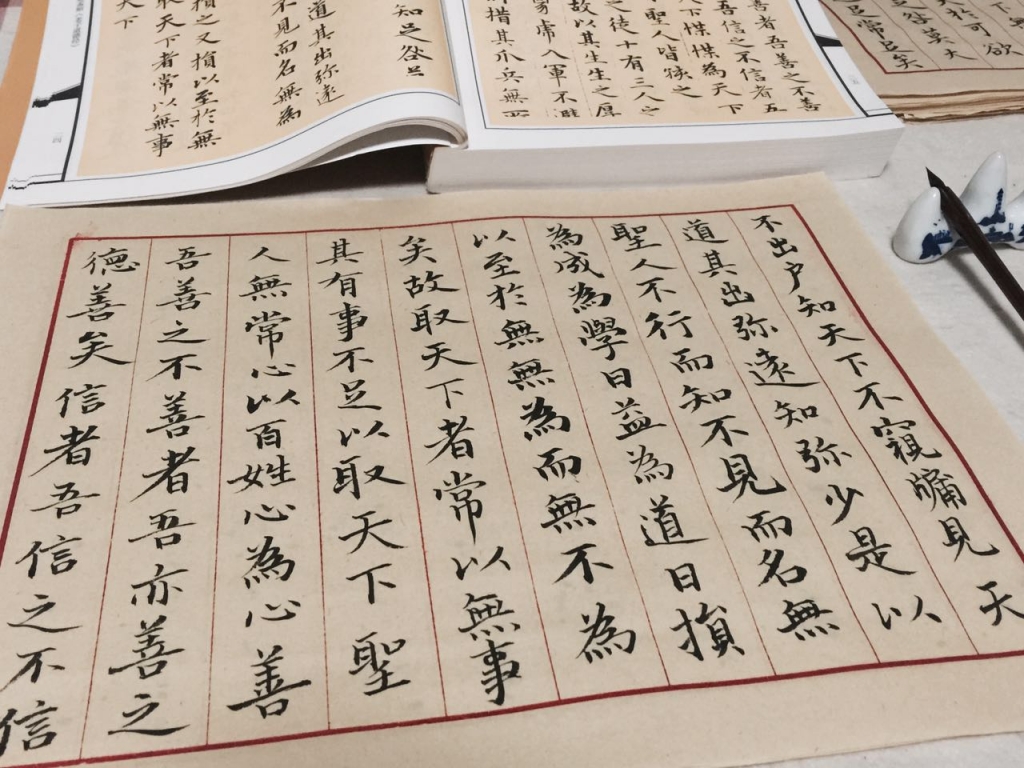 不出户知天下不窺牖見天
道其出弥遠知弥少是以
聖人不行而知不見而名無
為成為學日益為道日損
以至於無無為而無不為
矣故取天下者常以無事
其有事不足以取天下聖
人無常心以百姓心為心善
吾善之不善者吾亦善之
德善矣信者吾信之不信
善者吾善之不善
吾信之不信者吾
下惵惵為天下
聖人皆孩之
之徒十有三人之
故以其生生之厚
虎入軍不避
措其爪兵無所
知足咎
道其出弥遠
不見而名無為
損之又損以至於無
取天下者常以無事
天下
可欲
咎莫大
足常足矣